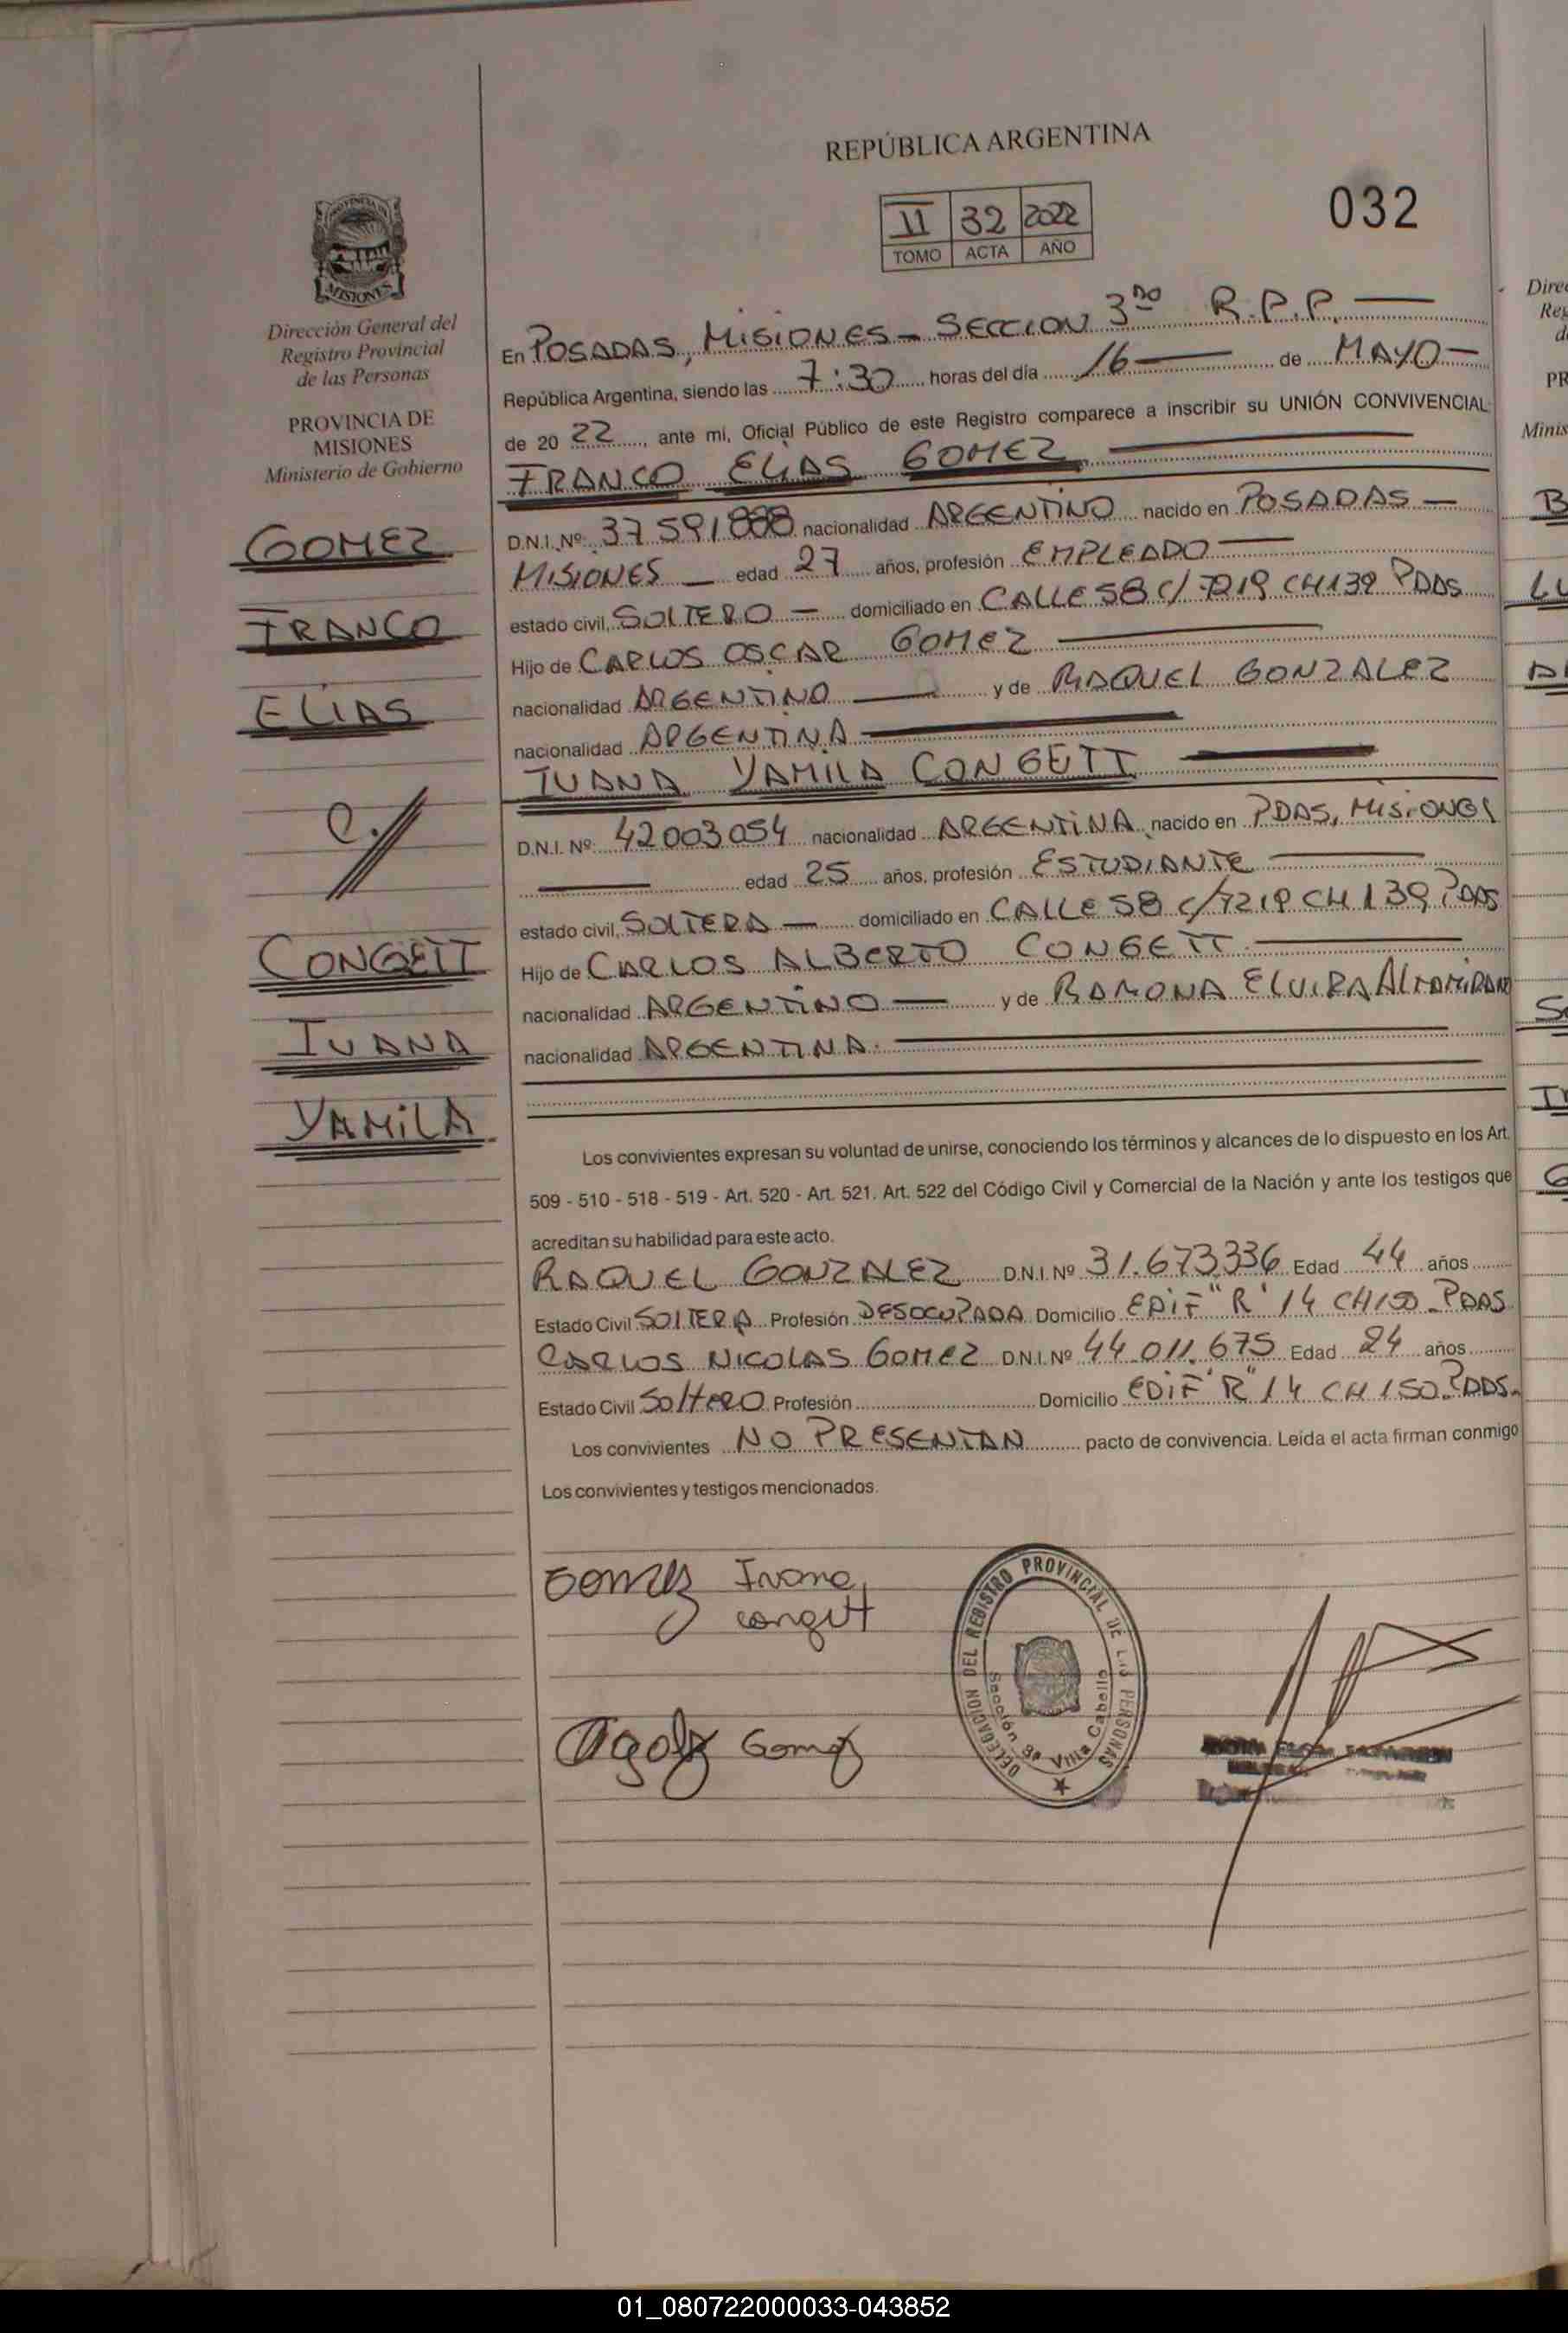 REPÚBLICA ARGENTINA
II 32 2022
TOMO ACTA AÑO
032
PROVINCIA DE
MISIONES
Dirección General del
Registro Provincial
de las Personas
PROVINCIA DE
MISIONES
Ministerio de Gobierno
GOMEZ
FRANCO
ELIAS
C.//
CONGETT
IVANA
YAMILA
En POSADAS, MISIONES - SECCION 3ra R.P.P.
República Argentina, siendo las 7:30 horas del día 16 de MAYO
de 2022, ante mi, Oficial Público de este Registro comparece a inscribir su UNIÓN CONVIVENCIAL
FRANCO ELIAS GOMEZ
D.N.I. Nº: 37591888 nacionalidad ARGENTINO nacido en POSADAS
MISIONES edad 27 años, profesión EMPLEADO
estado civil, SOLTERO domiciliado en CALLE 58 C/ 7219 CH 139 PDAS
Hijo de CARLOS OSCAR GOMEZ
nacionalidad ARGENTINO y de RAQUEL GONZALEZ
nacionalidad ARGENTINA
IVANA YAMILA CONGETT
D.N.I. Nº: 42003054 nacionalidad ARGENTINA nacido en PDAS, MISIONES
edad 25 años, profesión ESTUDIANTE
estado civil, SOLTERA domiciliado en CALLE 58 c/7219 CH 139 PDAS
Hijo de CARLOS ALBERTO CONGETT
nacionalidad ARGENTINO y de RAMONA ELVIRA
nacionalidad ARGENTINA.
Los convivientes expresan su voluntad de unirse, conociendo los términos y alcances de lo dispuesto en los Art.
509 - 510 - 518 - 519 - Art. 520 - Art. 521. Art. 522 del Código Civil y Comercial de la Nación y ante los testigos que
acreditan su habilidad para este acto.
RAQUEL GONZALEZ D.N.I. Nº 31.673.336 Edad 44 años
Estado Civil SOLTERA Profesión DESOCUPADA Domicilio EDIF "R" 14 CH 150 - PDAS
CARLOS NICOLAS GOMEZ D.N.I. Nº 44.011.675 Edad 24 años
Estado Civil Soltero Profesión Domicilio EDIF "R" 14 CH 150 PDAS.
Los convivientes NO PRESENTAN pacto de convivencia. Leída el acta firman conmigo
Los convivientes y testigos mencionados.
Gomez Ivana
congett
Gomez
DELEGACION DEL REGISTRO PROVINCIAL DE LAS PERSONAS
Sección 3ª Villa Cabello
01_080722000033-043852